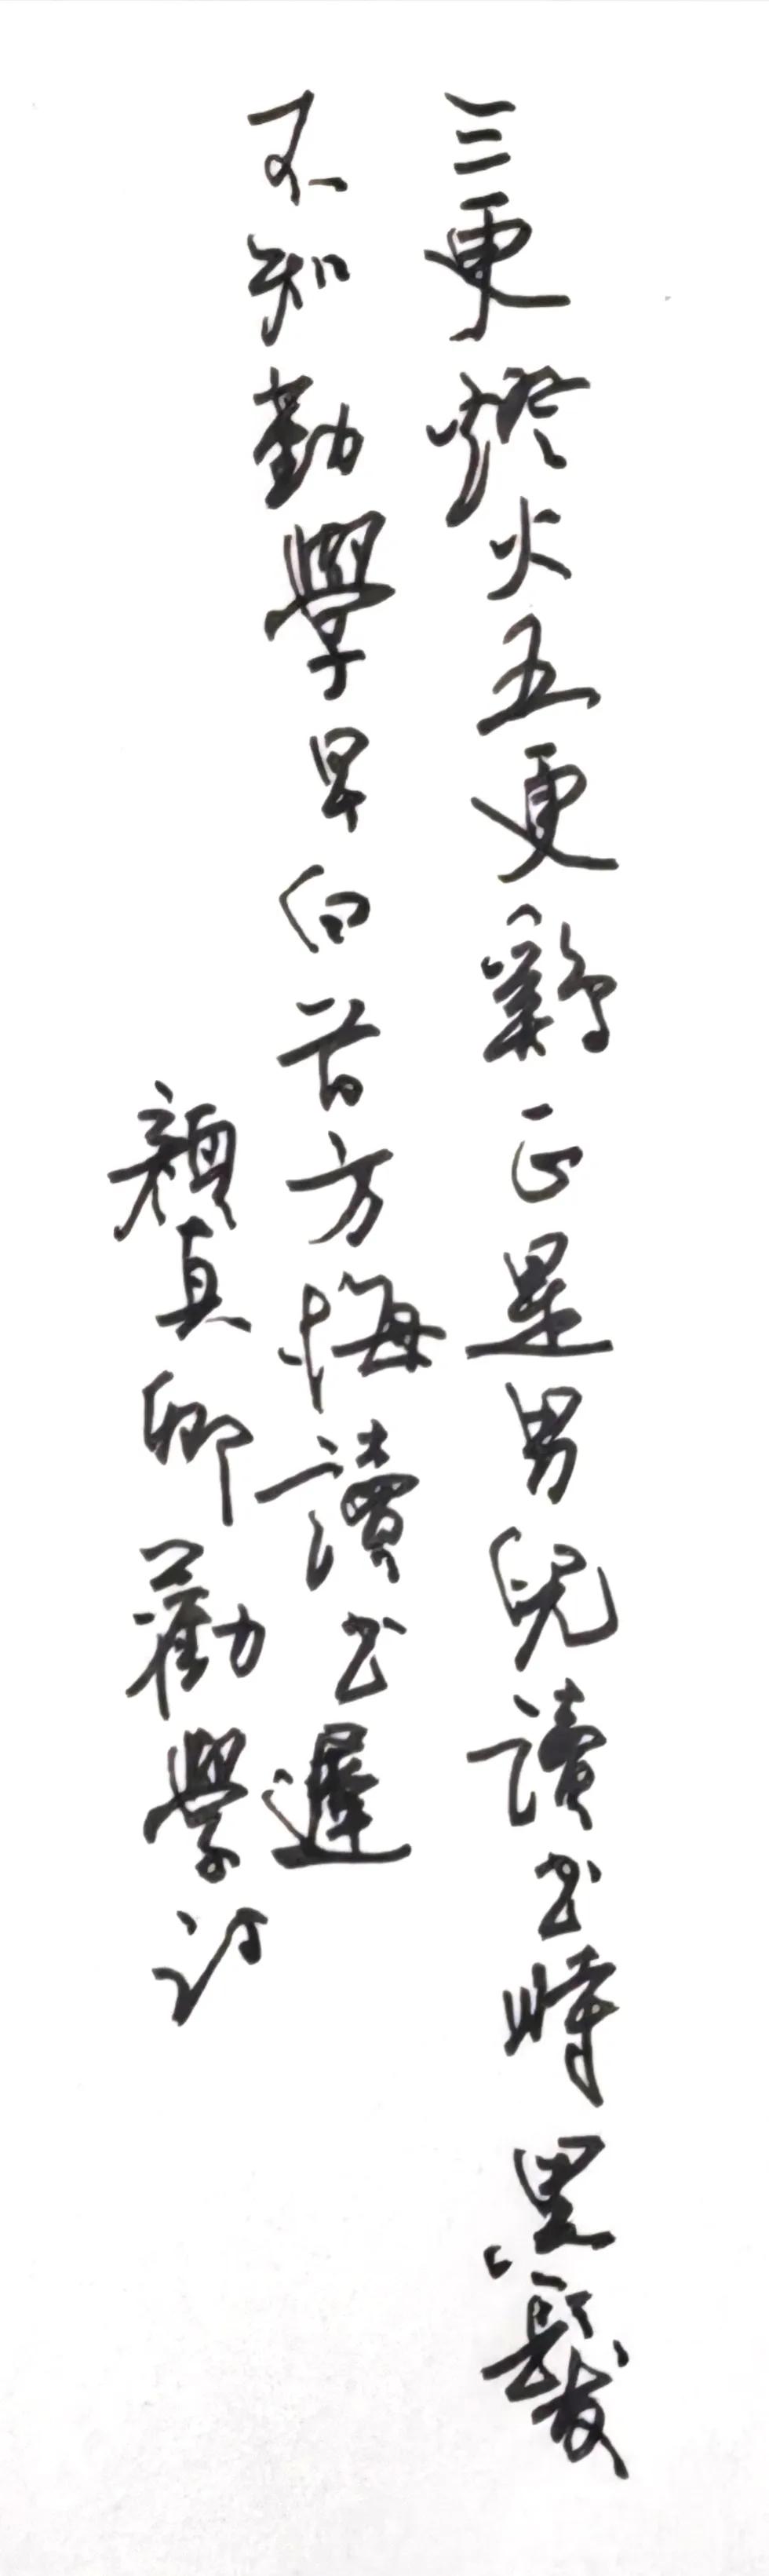 三更燈火五更鷄正是男兒讀书時黑髮
不知勤學早白首方悔讀书遲
顏真卿勸學詩